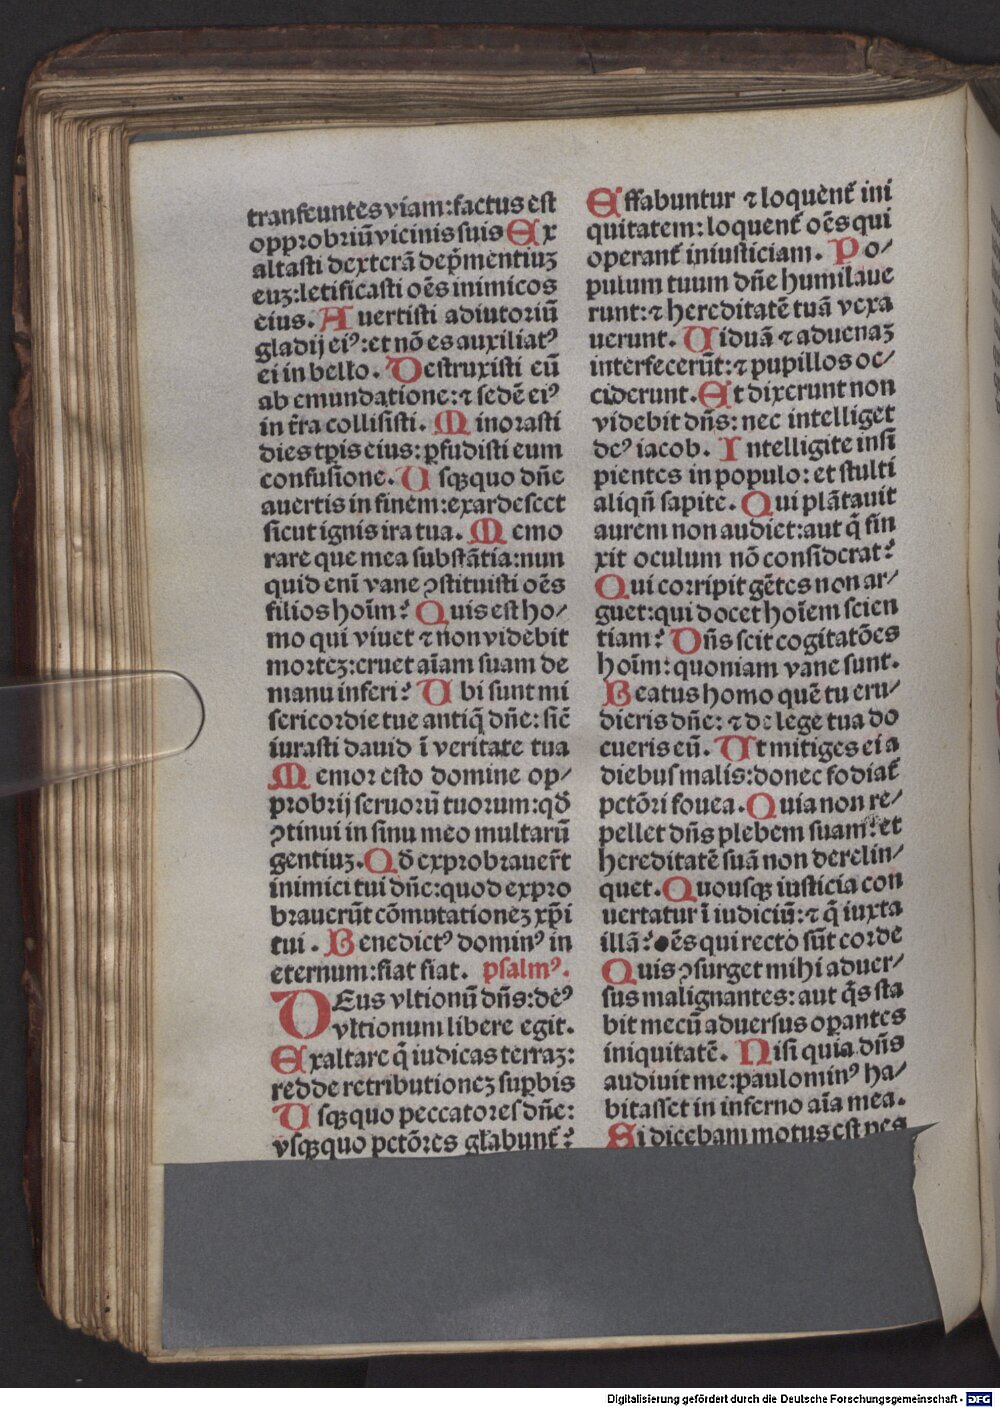 transeuntes viam: factus est
opprobriũ vicinis suis Ex
altasti dexterã dep̃mentiuꝫ
euꝫ: letificasti oẽs inimicos
eius. Auertisti adiutoriũ
gladij eiꝰ: et nõ es auxiliatꝰ
ei in bello. Destruxisti eũ
ab emundatione: ⁊ sedẽ eiꝰ
in t̃ra collisisti. Minorasti
dies tp̃is eius: ꝑfudisti eum
confusione. Usqꝫquo dñe
auertis in finem: exardescet
sicut ignis ira tua. Memo
rare que mea substãtia: nun
quid enĩ vane ꝯstituisti oẽs
filios hoĩm? Quis est ho/
mo qui viuet ⁊ non videbit
morteꝫ: eruet aĩam suam de
manu inferi? Ubi sunt mi
sericordie tue antiq̃ dñe: sic̃
iurasti dauid ĩ veritate tua
Memor esto domine op/
probrij seruorũ tuorum: qđ
ꝯtinui in sinu meo multarũ
gentiuꝫ. Qđ exprobrauer̃t
inimici tui dñe: quod expro
brauerũt cõmutationeꝫ xp̃i
tui. Benedictꝰ dominꝰ in
eternum: fiat fiat. psalmꝰ.
DEus vltionũ dñs: deꝰ
vltionum libere egit.
Exaltare q̃ iudicas terraꝫ:
redde retributioneꝫ suꝑbis
Usqꝫquo peccatores dñe:
vsqꝫquo pctõres gl̃abunt̃?
Effabuntur ⁊ loquẽnt̃ ini
quitatem: loquent̃ oẽs qui
operant̃ iniusticiam. Po/
pulum tuum dñe humilaue
runt: ⁊ hereditatẽ tuã vexa
uerunt. Uiduã ⁊ aduenaꝫ
interfecerũt: ⁊ pupillos oc/
ciderunt. Et dixerunt non
videbit dñs: nec intelliget
deꝰ iacob. Intelligite insi
pientes in populo: et stulti
aliqñ sapite. Qui plãtauit
aurem non audiet: aut q̃ fin
xit oculum nõ considerat?
Qui corripit gẽtes non ar/
guet: qui docet hoĩem scien
tiam? Dñs scit cogitatões
hoĩm: quoniam vane sunt.
Beatus homo quẽ tu eru/
dieris dñe: ⁊ de lege tua do
cueris eũ. Ut mitiges ei a
diebus malis: donec fodiat̃
pctõri fouea. Quia non re/
pellet dñs plebem suam: et
hereditatẽ suã non derelin/
quet. Quousqꝫ iusticia con
uertatur ĩ iudiciũ: ⁊ q̃ iuxta
illã? oẽs qui recto sũt corde
Quis ꝯsurget mihi aduer/
sus malignantes: aut q̃s sta
bit mecũ aduersus oꝑantes
iniquitatẽ. Nisi quia dñs
audiuit me: paulominꝰ ha/
bitasset in inferno aĩa mea.
Si dicebam motus est pes
Digitalisierung gefördert durch die Deutsche Forschungsgemeinschaft - DFG